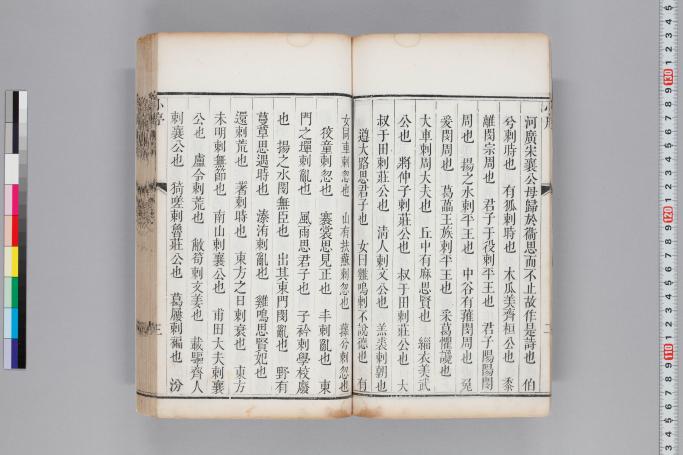 河廣宋襄公母歸於衞思而不止故作是詩也　伯
兮刺時也　有狐刺時也　木瓜美齊桓公也　黍
離閔宗周也　君子于役刺平王也　君子陽陽閔
周也　揚之水刺平王也　中谷有蓷閔周也　兔
爰閔周也　葛藟王族刺平王也　采葛懼讒也
大車刺周大夫也　丘中有麻思賢也　緇衣美武
公也　將仲子刺莊公也　叔于田刺莊公也　大
叔于田刺莊公也　清人刺文公也　羔裘刺朝也
遵大路思君子也　女曰雞鳴刺不說德也　有
女同車刺忽也　山有扶蘇刺忽也　蘀兮刺忽也
狡童刺忽也　褰裳思見正也　丰刺亂也　東
門之墠刺亂也　風雨思君子也　子衿刺學校廢
也　揚之水閔無臣也　出其東門閔亂也　野有
蔓草思遇時也　溱洧刺亂也　雞鳴思賢妃也
還刺荒也　著刺時也　東方之日刺衰也　東方
未明刺無節也　南山刺襄公也　甫田大夫刺襄
公也　盧令刺荒也　敝笱刺文姜也　載驅齊人
刺襄公也　猗嗟刺魯莊公也　葛屨刺褊也　汾
小序
三